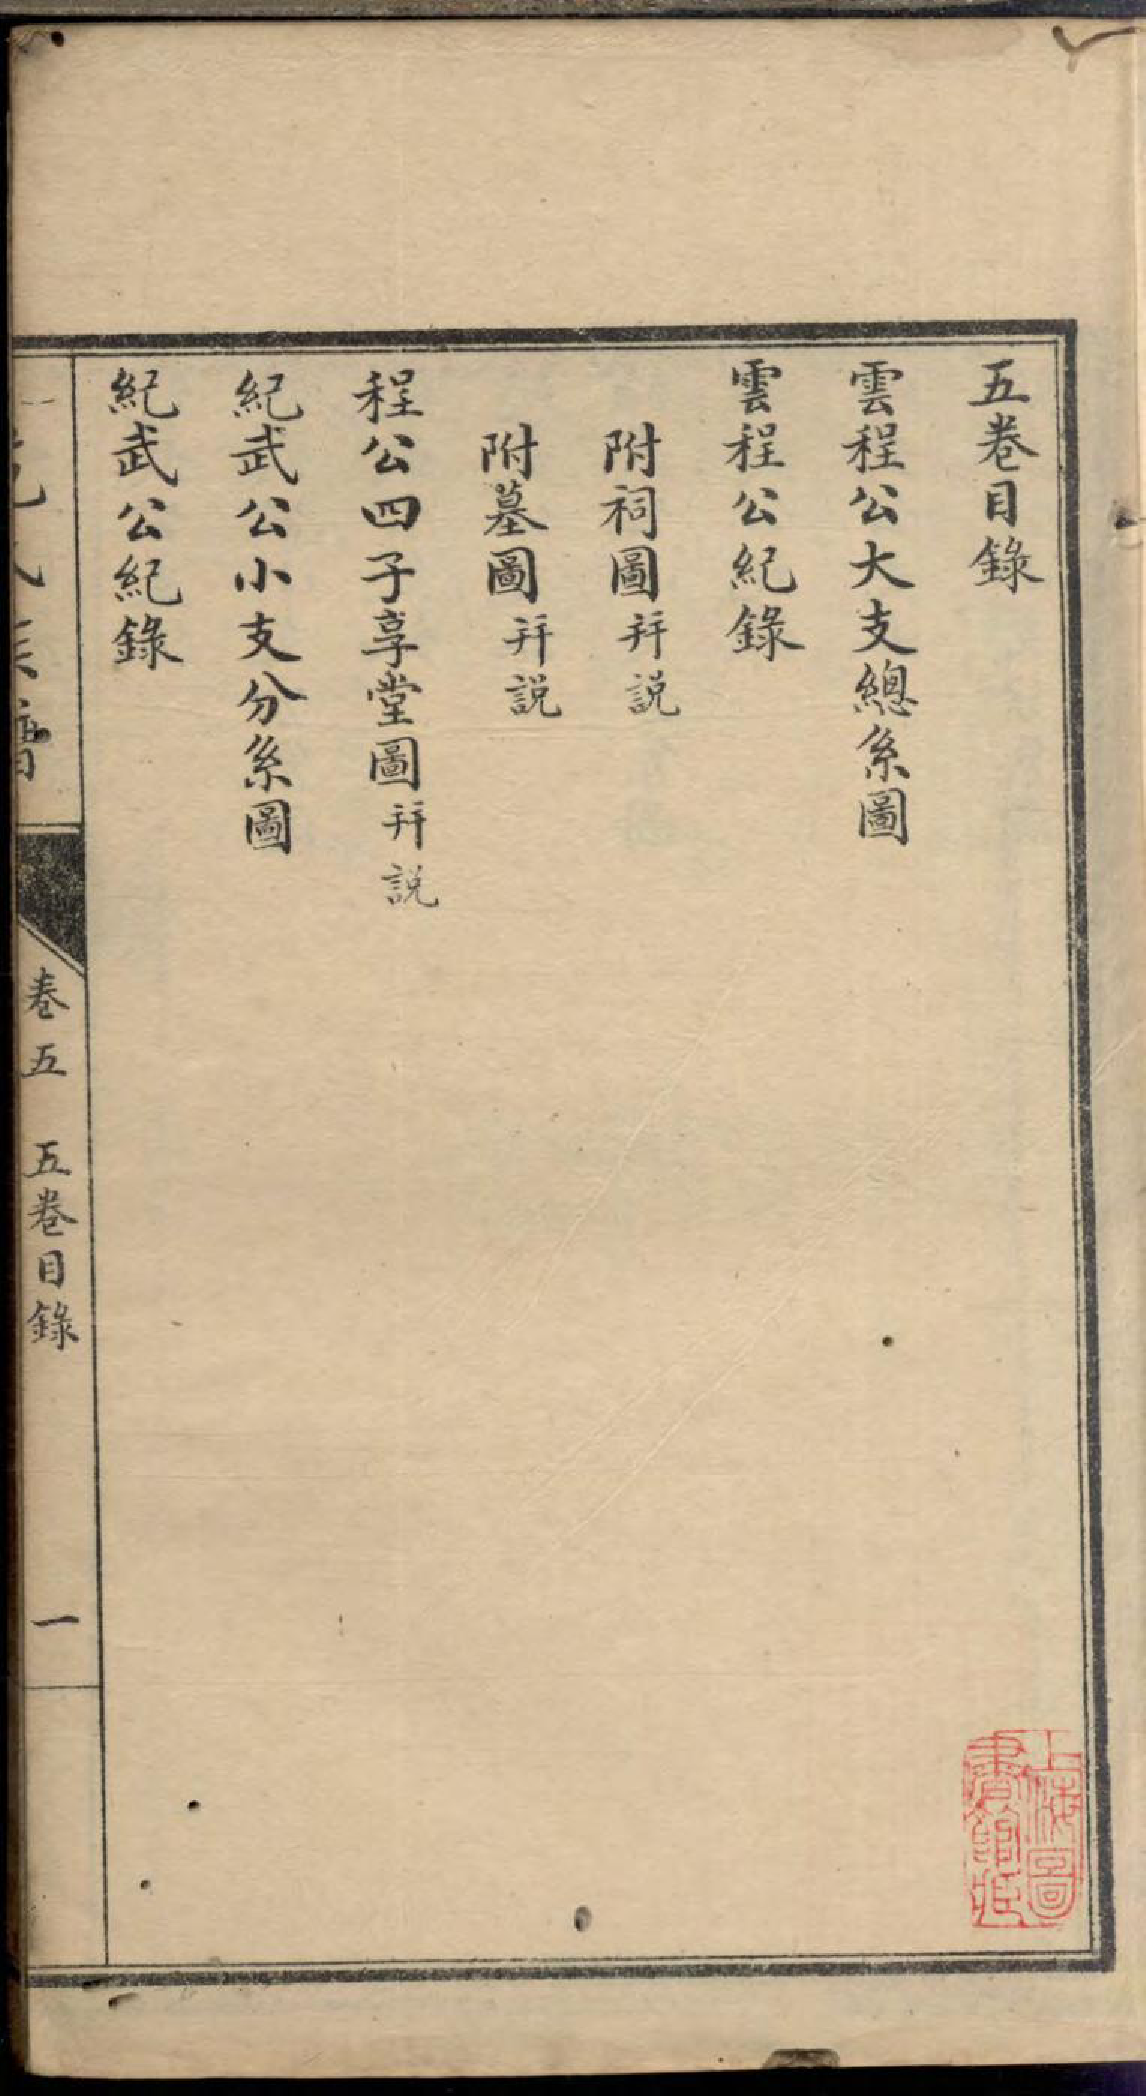 五卷目錄
雲程公大支總系圖
雲程公紀錄
附祠圖并説
附墓圖并説
程公四子享堂圖并説
紀武公小支分系圖
紀武公紀錄
氏族譜
卷五
五卷目錄
一
上海圖書館藏